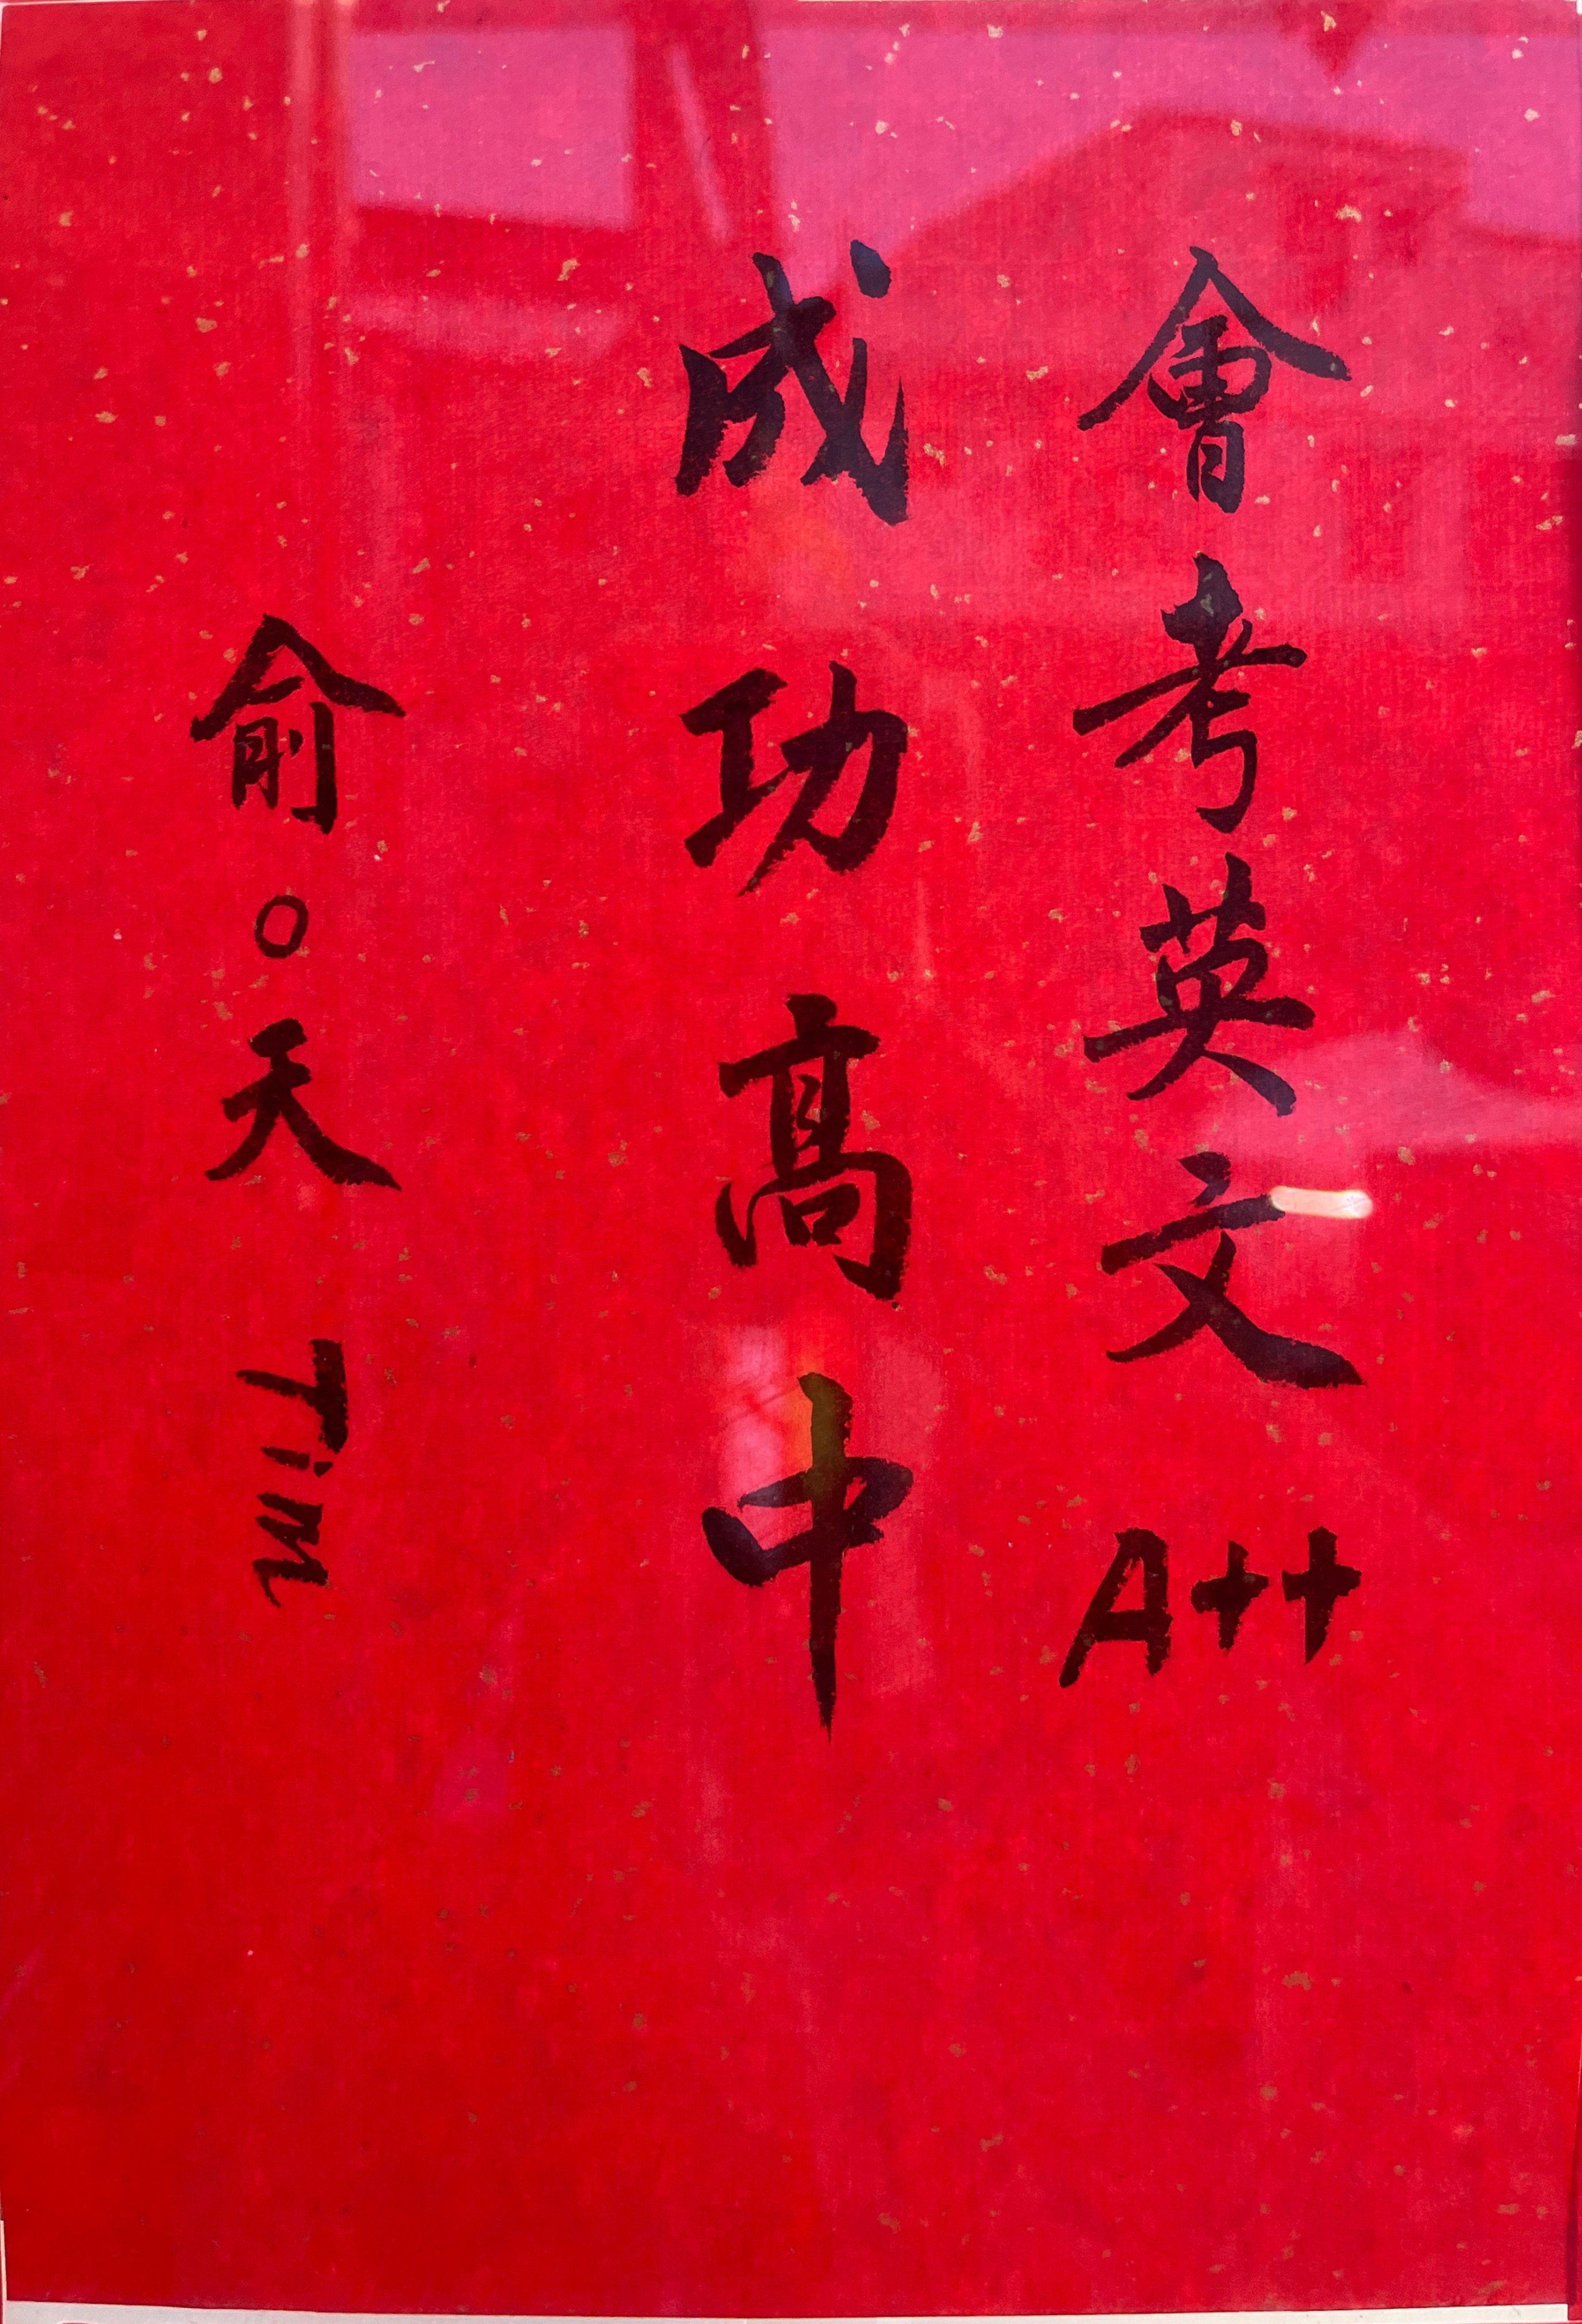 會考英文A++
成功高中
俞○天 Tim